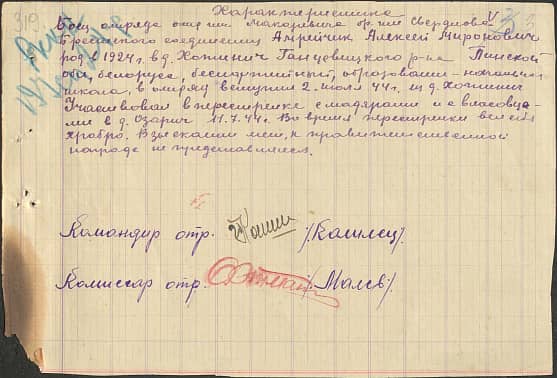 319.
3
Характеристика
Боец отряда им. Макаревича бр. им. Свердлова
Брестского соединения Андрейчик Алексей Миронович
род. в 1924 г. в д. Хотинич Ганцевицкого р-на Пинской
обл, белорус, беспартийный, образован – начальн
школа, в отряд вступил 2. июля 44 г. из д. Хотинич
Участвовал в перестрелке с мадярами и с власовца-
ми в д. Озарич 11.7.44 г. Во время перестрелки вел себя
храбро. Взыскани нет, к правительственной
награде не представлялся.
Командир отр. /Кашлец/.
Комиссар отр. /Малев/